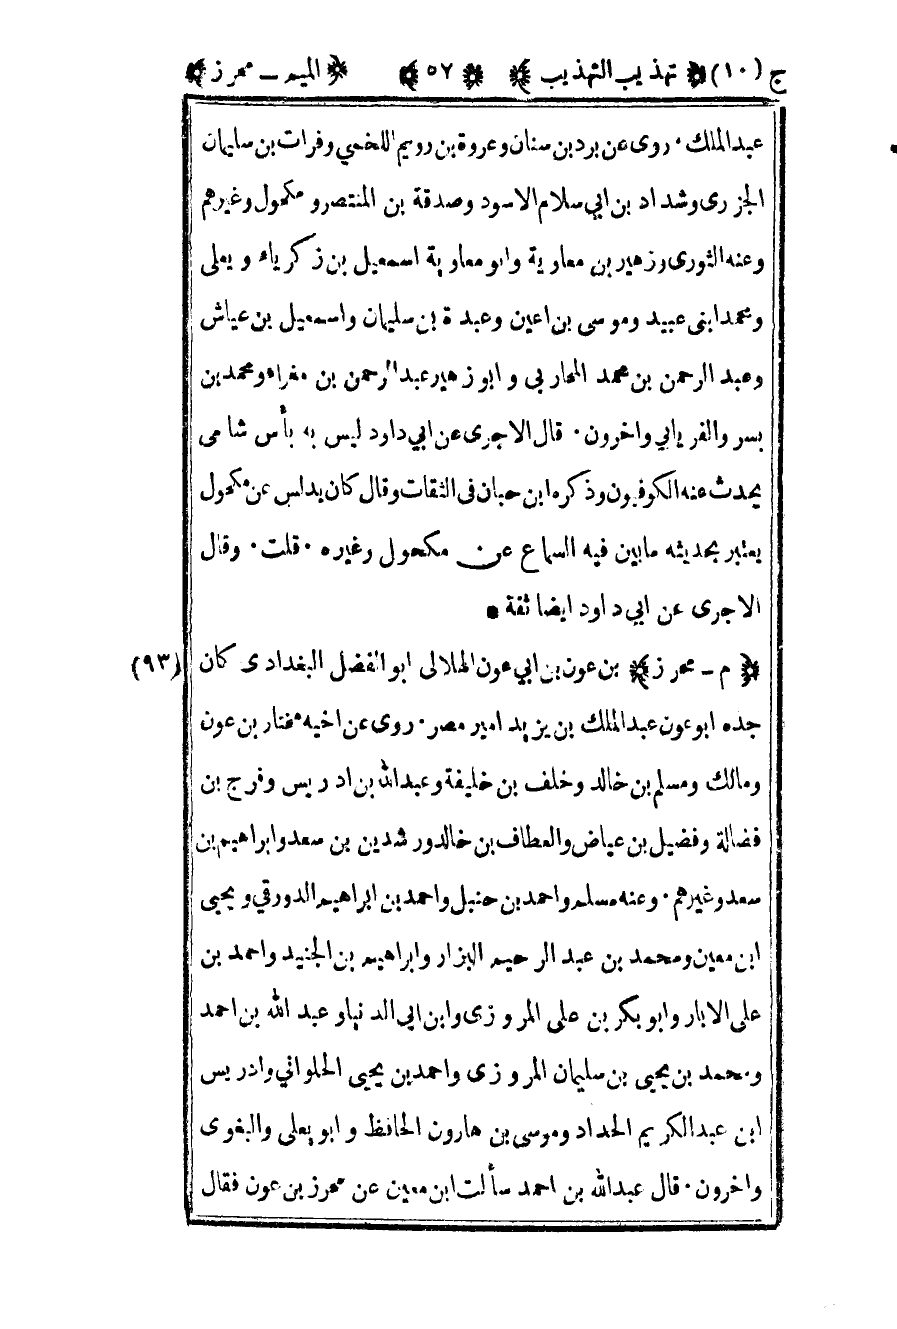 ج (١٠) ﴿ تهذيب التهذيب ﴾ ﴿ ٥٧ ﴾ ﴿ الميم ــ محرز ﴾
عبدالملك٠ روى عن برد بن سنان وعروة بن رويم اللخمي وفرات بن سليمان
الجزرى وشداد بن ابي سلام الاسود وصدقة بن المنتصر ومكحول وغيرهم
وعنه الثورى وزهير بن معاوية وابو معاوية اسمعيل بن زكرياء ويعلى
ومحمد ابنى عبيد وموسى بن اعين وعبدة بن سليمان واسمعيل بن عياش
وعبد الرحمن بن محمد المحاربي وابو زهير عبد الرحمن بن مغراء ومحمد بن
بسر والفريابي واخرون٠ قال الاجرى عن ابي داود ليس به بأس شامى
يحدث عنه الكوفيون وذكره ابن حبان فى الثقات وقال كان يدلس عن مكحول
يعتبر بحديثه مابين فيه السماع عن مكحول وغيره ٠ قلت٠ وقال
الاجرى عن ابي داود ايضا ثقة *
﴿ م ــ محرز ﴾ بن عون بن ابي عون الهلالى ابو الفضل البغدادى كان (٩٣)
جده ابو عون عبدالملك بن يزيد امير مصر٠ روى عن اخيه مختار بن عون
ومالك ومسلم بن خالد وخلف بن خليفة وعبدالله بن ادريس وفرج بن
فضالة وفضيل بن عياض والعطاف بن خالد ورشدين بن سعد وابراهيم بن
سعد وغيرهم٠ وعنه مسلم واحمد بن حنبل واحمد بن ابراهيم الدورقي ويحيى
ابن معين ومحمد بن عبد الرحيم البزار وابراهيم بن الجنيد واحمد بن
على الابار وابو بكر بن على المروزى وابن ابي الدنيا وعبد الله بن احمد
ومحمد بن يحيى بن سليمان المروزى واحمد بن يحيى الحلواني وادريس
ابن عبدالكريم الحداد وموسى بن هارون الحافظ وابو يعلى والبغوى
واخرون٠ قال عبدالله بن احمد سألت ابن معين عن محرز بن عون فقال